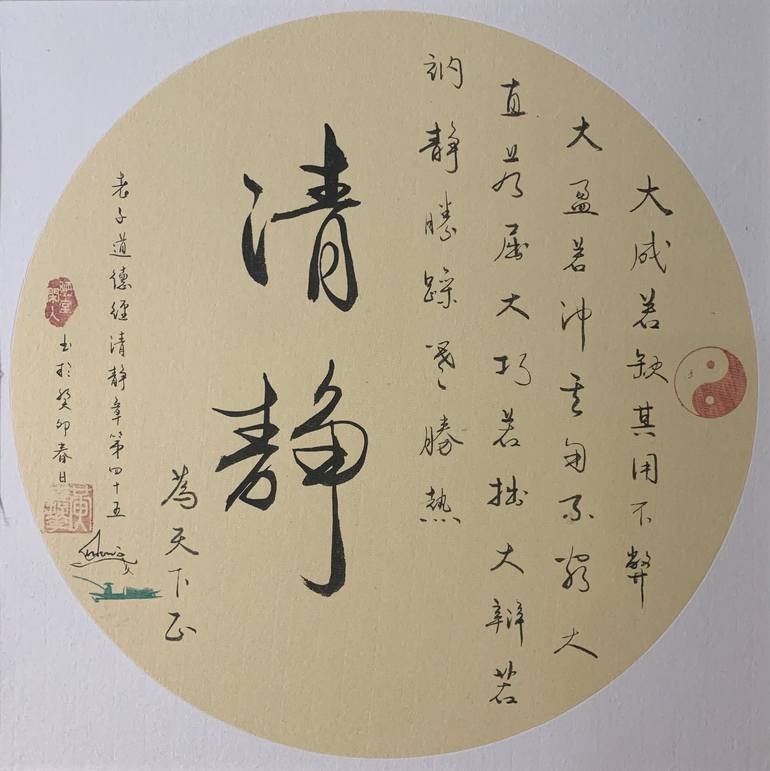 大成若缺其用不弊
大盈若沖其用不窮大
直若屈大巧若拙大辯若
訥静勝躁寒勝熱
清静
為天下正
老子道德經清静章第四十五
书於癸卯春日